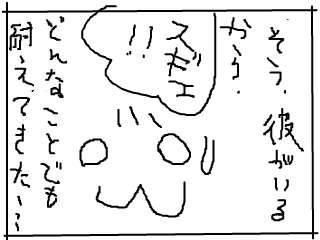 そう、彼がいる
から、
スゲェ
!!
どんなことでも
耐えてきた、、